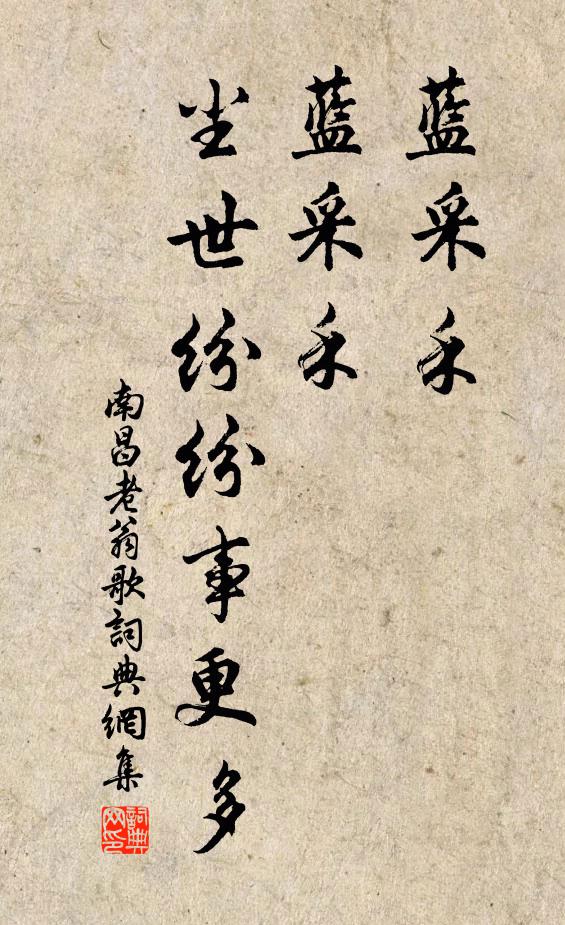 藍采禾
藍采禾
尘世紛紛事更多
南昌老翁歌詞典網集
詞典
网印